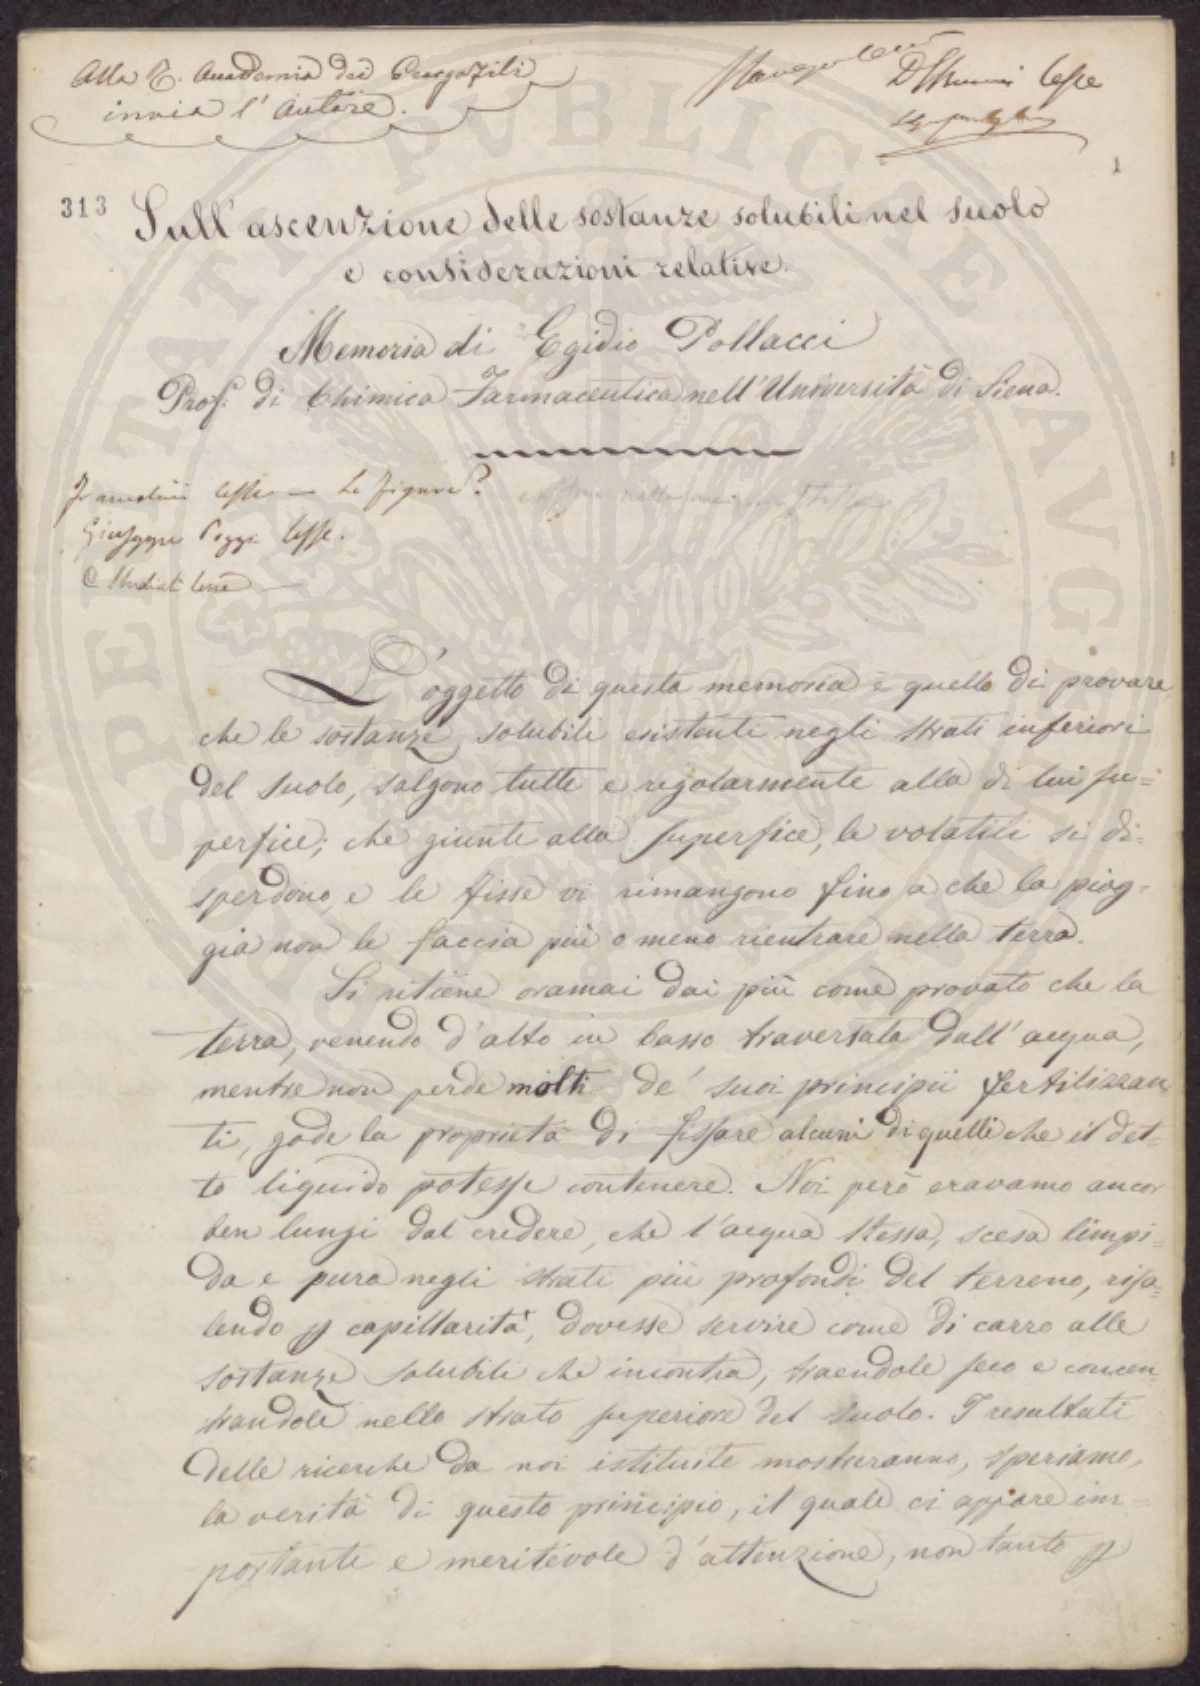 Alla R. Accademia dei Georgofili
invia l'Autore.
1
313
Sull'ascenzione delle sostanze solubili nel suolo
e considerazioni relative.
Memoria di Egidio Pollacci
Prof. di Chimica Farmaceutica nell'Università di Siena.
lesse — Le figure?
Giuseppe Poggi lesse.
L'oggetto di questa memoria è quello di provare
che le sostanze solubili esistenti negli strati inferiori
del suolo, salgono tutte e regolarmente alla di lui su=
perfice; che giunte alla superfice, le volatili si di=
sperdono, e le fisse vi rimangono fino a che la piog=
gia non le faccia più o meno rientrare nella terra.
Si ritiene oramai dai più come provato che la
terra, venendo d'alto in basso traversata dall'acqua,
mentre non perde molti de' suoi principii fertilizzan=
ti, gode la proprietà di fissare alcuni di quelli che il det=
to liquido potesse contenere. Noi però eravamo ancor
ben lungi dal credere, che l'acqua stessa, scesa limpi=
da e pura negli strati più profondi del terreno, risa=
lendo p capillarità, dovesse servire come di carro alle
sostanze solubili che incontra, traendole seco e concen=
trandole nello strato superiore del suolo. I resultati
delle ricerche da noi istituite mostreranno, speriamo,
la verità di questo principio, il quale ci appare im=
portante e meritevole d'attenzione, non tanto p
SPEI PVBLICAE AVG